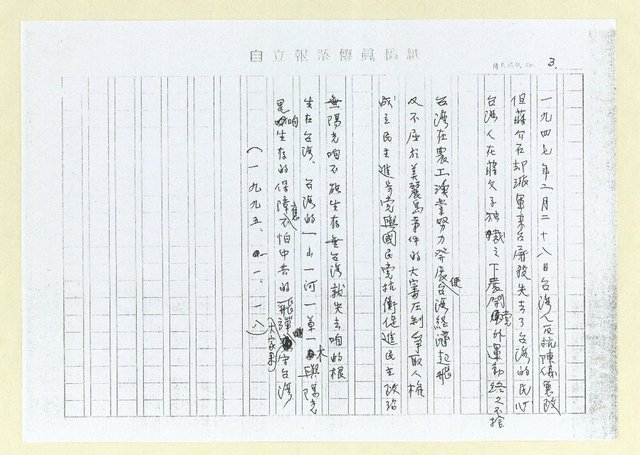 自立報系傳真稿紙
3.
一九四七年二月二十八日台灣人反抗陳儀惡政
但蔣介石却派軍來台屠殺失去了台灣的民心
台灣人在蔣父子独裁之下展開黨外運動終之不捨
台灣在農工漁業努力發展使台灣經濟起飛
又不屈於美麗島事件的大審压制爭取人權
成立民主進步党與國民党抗衡促進民主政治
無陽光咱不能生存無台灣就失去咱的根
生在台灣、台灣的一山一河一草一木與陽光
是咱生存的保障應不怕中共的飛彈大家來守台灣
(一九九五、一、一八)